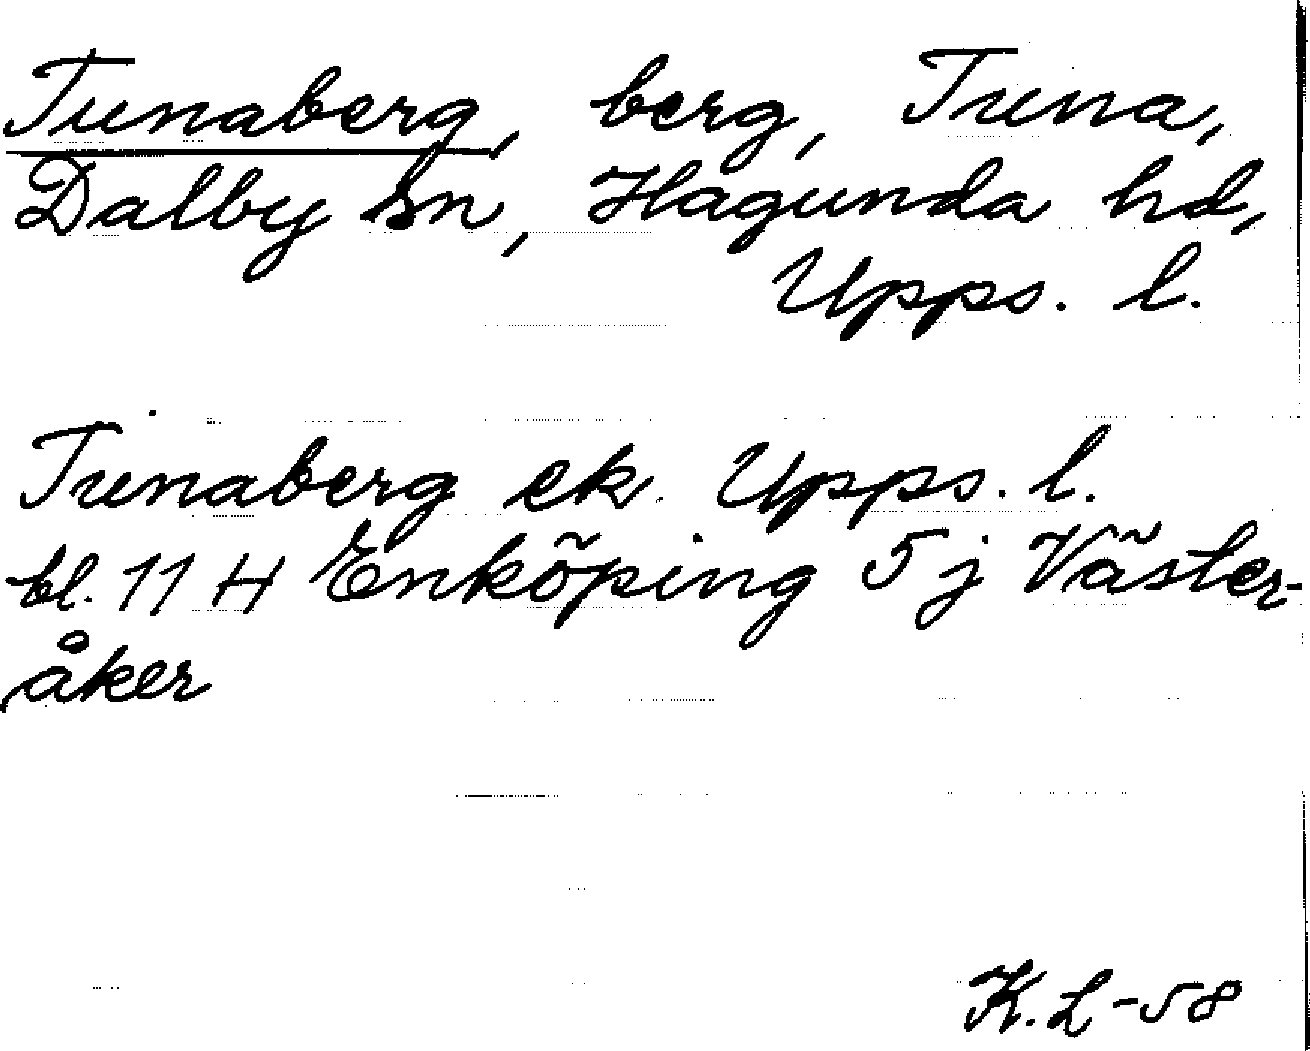 Tunaberg, berg, Tuna,
Dalby sn, Hagunda hd,
Upps. l.
Tunaberg ek. Upps. l.
bl. 11 H Enköping 5 j Väster-
åker
K.L-58